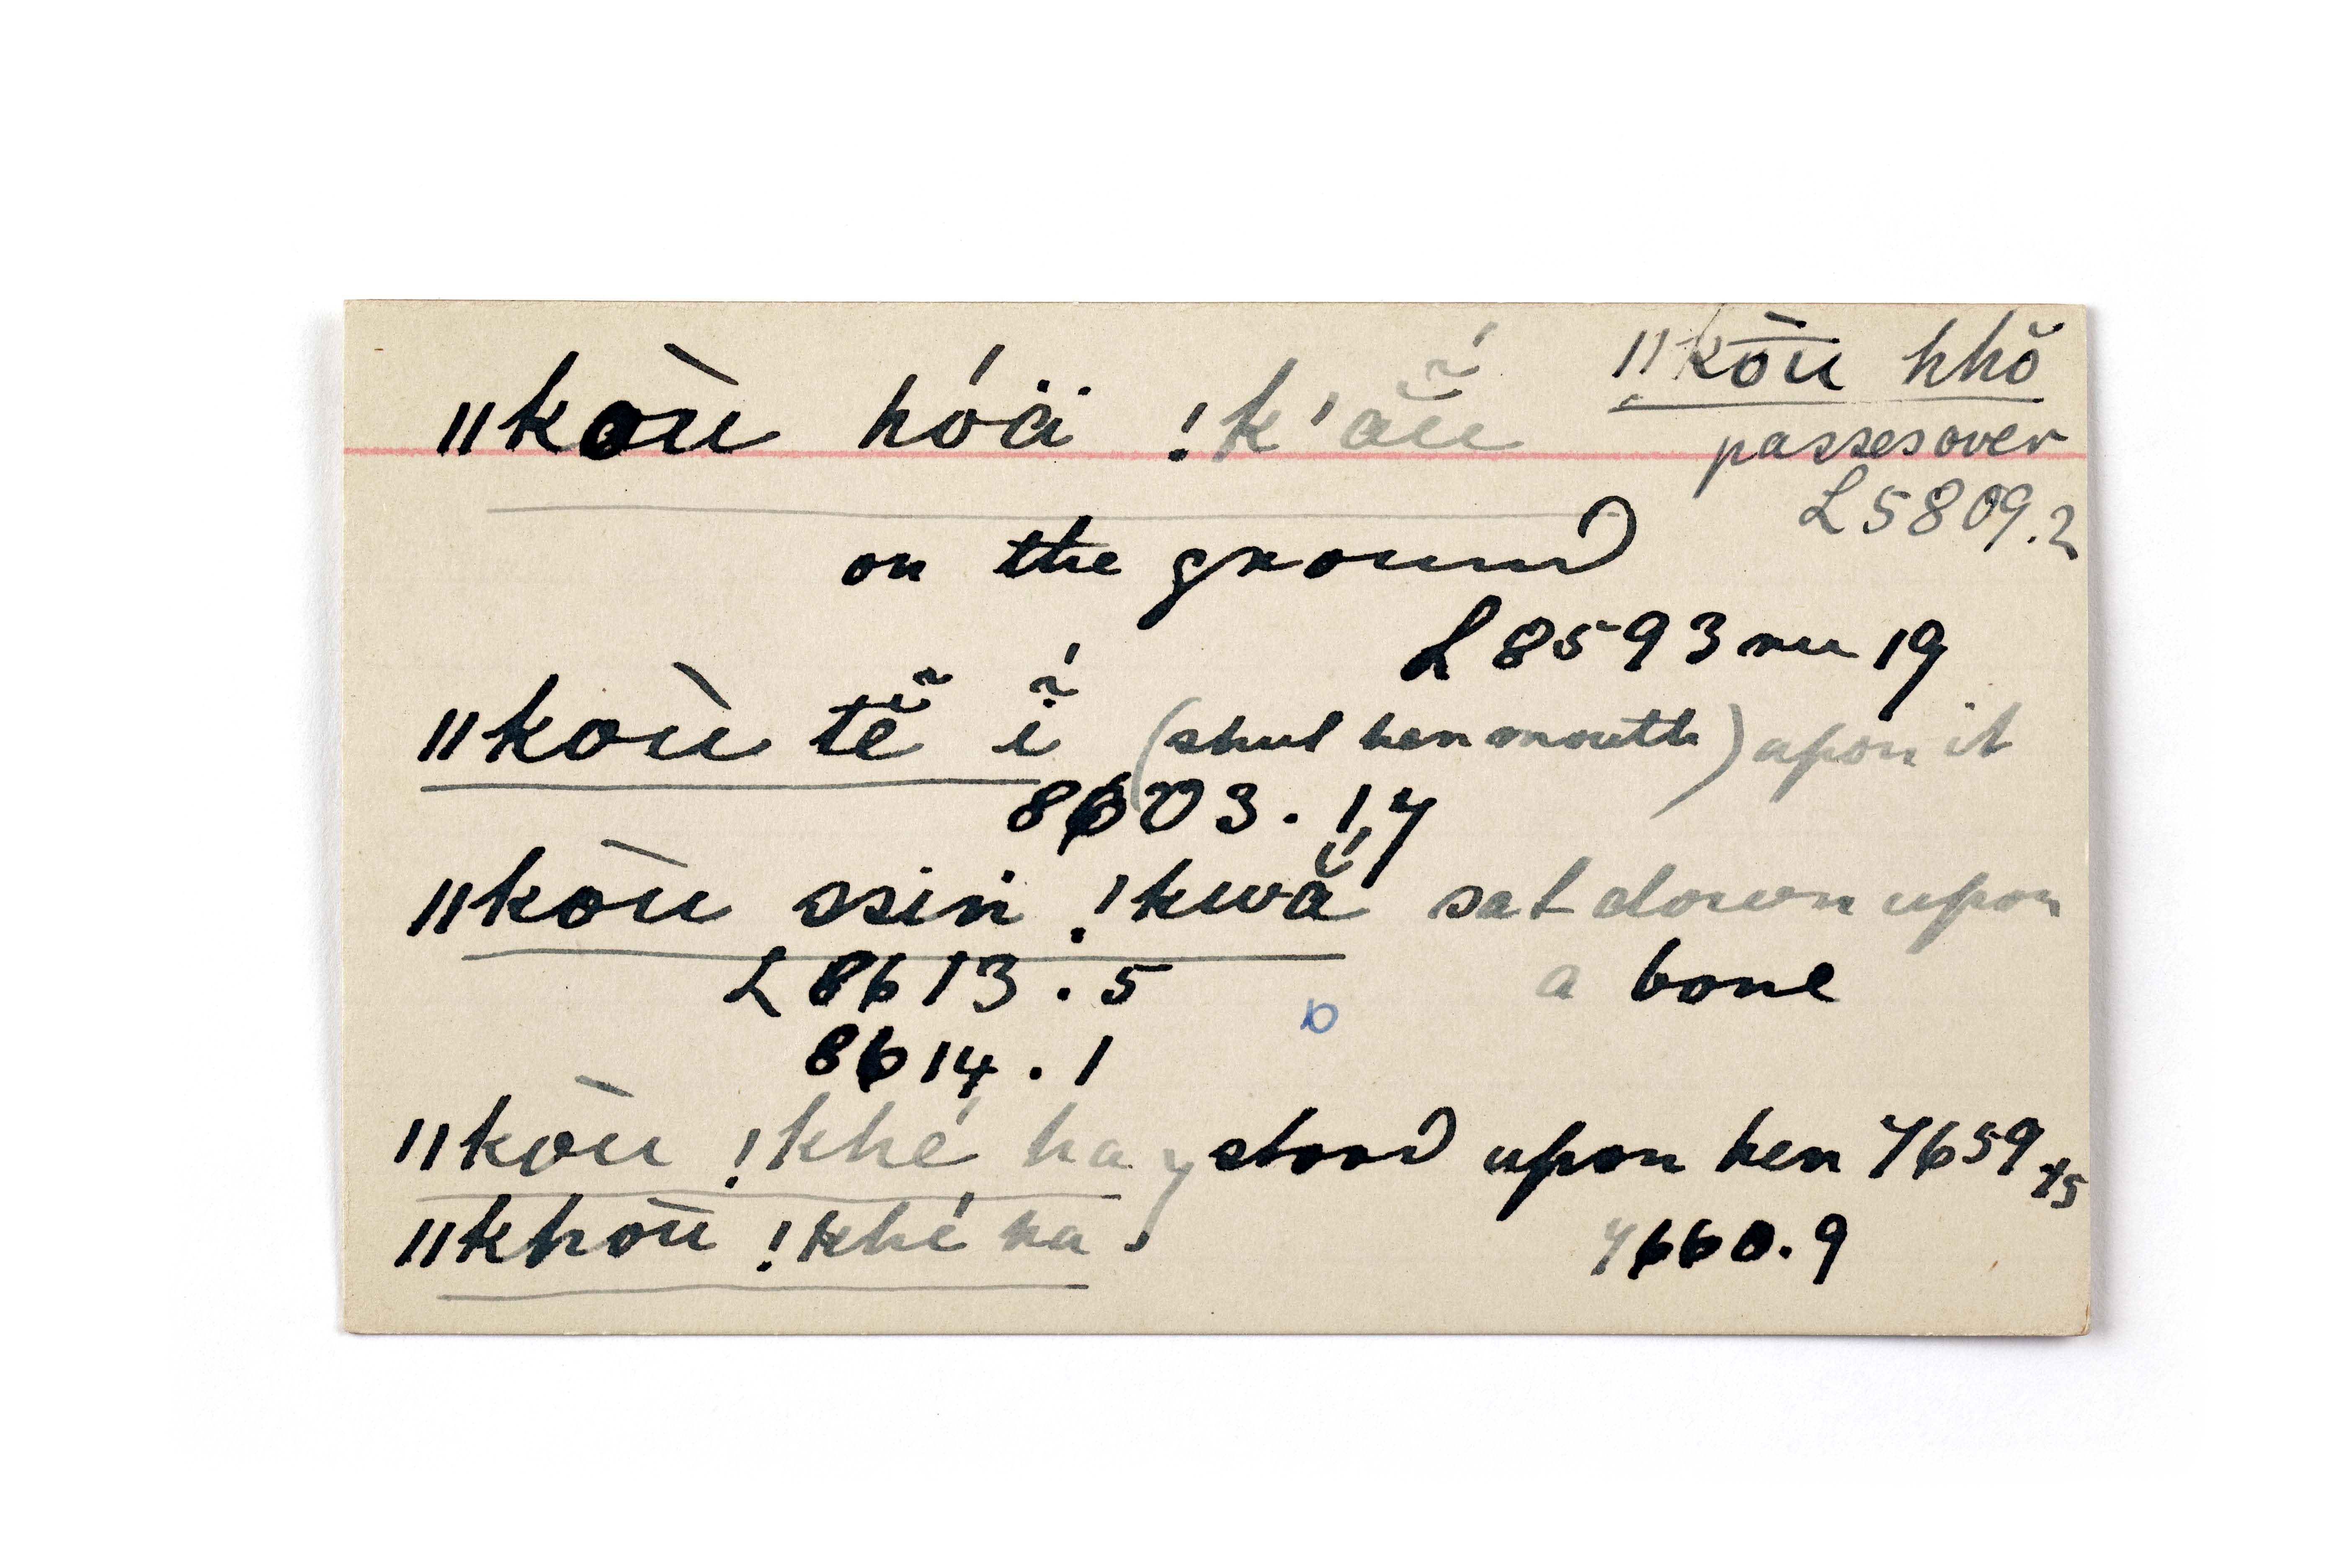 ǁkou̅ hhŏ
passes over
L 5809.2
ǁkou̅ hóä !k'ã̆ú
on the ground
L 8593 rev 19
ǁkou̅ tẽ̆ ĩ́ (shut her mouth) upon it
8603.17
ǁkou̅ ssin !kwă̋ sat down upon
L 8613.5 a bone
8614.1
ǁkou̅ !khé ha } stood upon her 7659.15
ǁkhou̅ !khé ha 7660.9